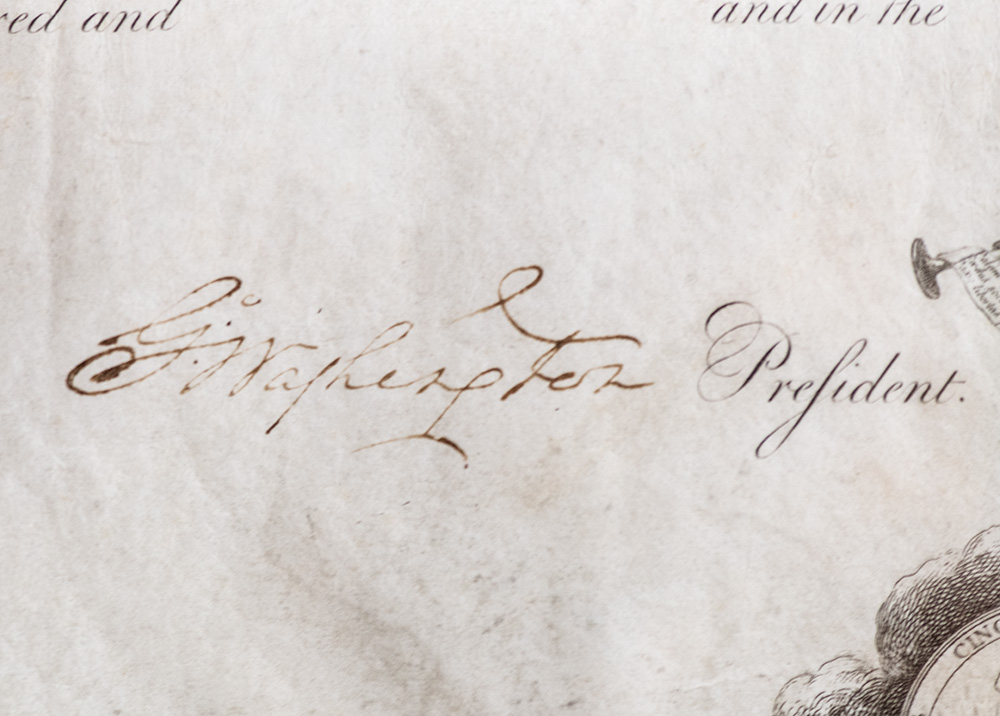 red and and in the
G:Washington Preſident.
CINC